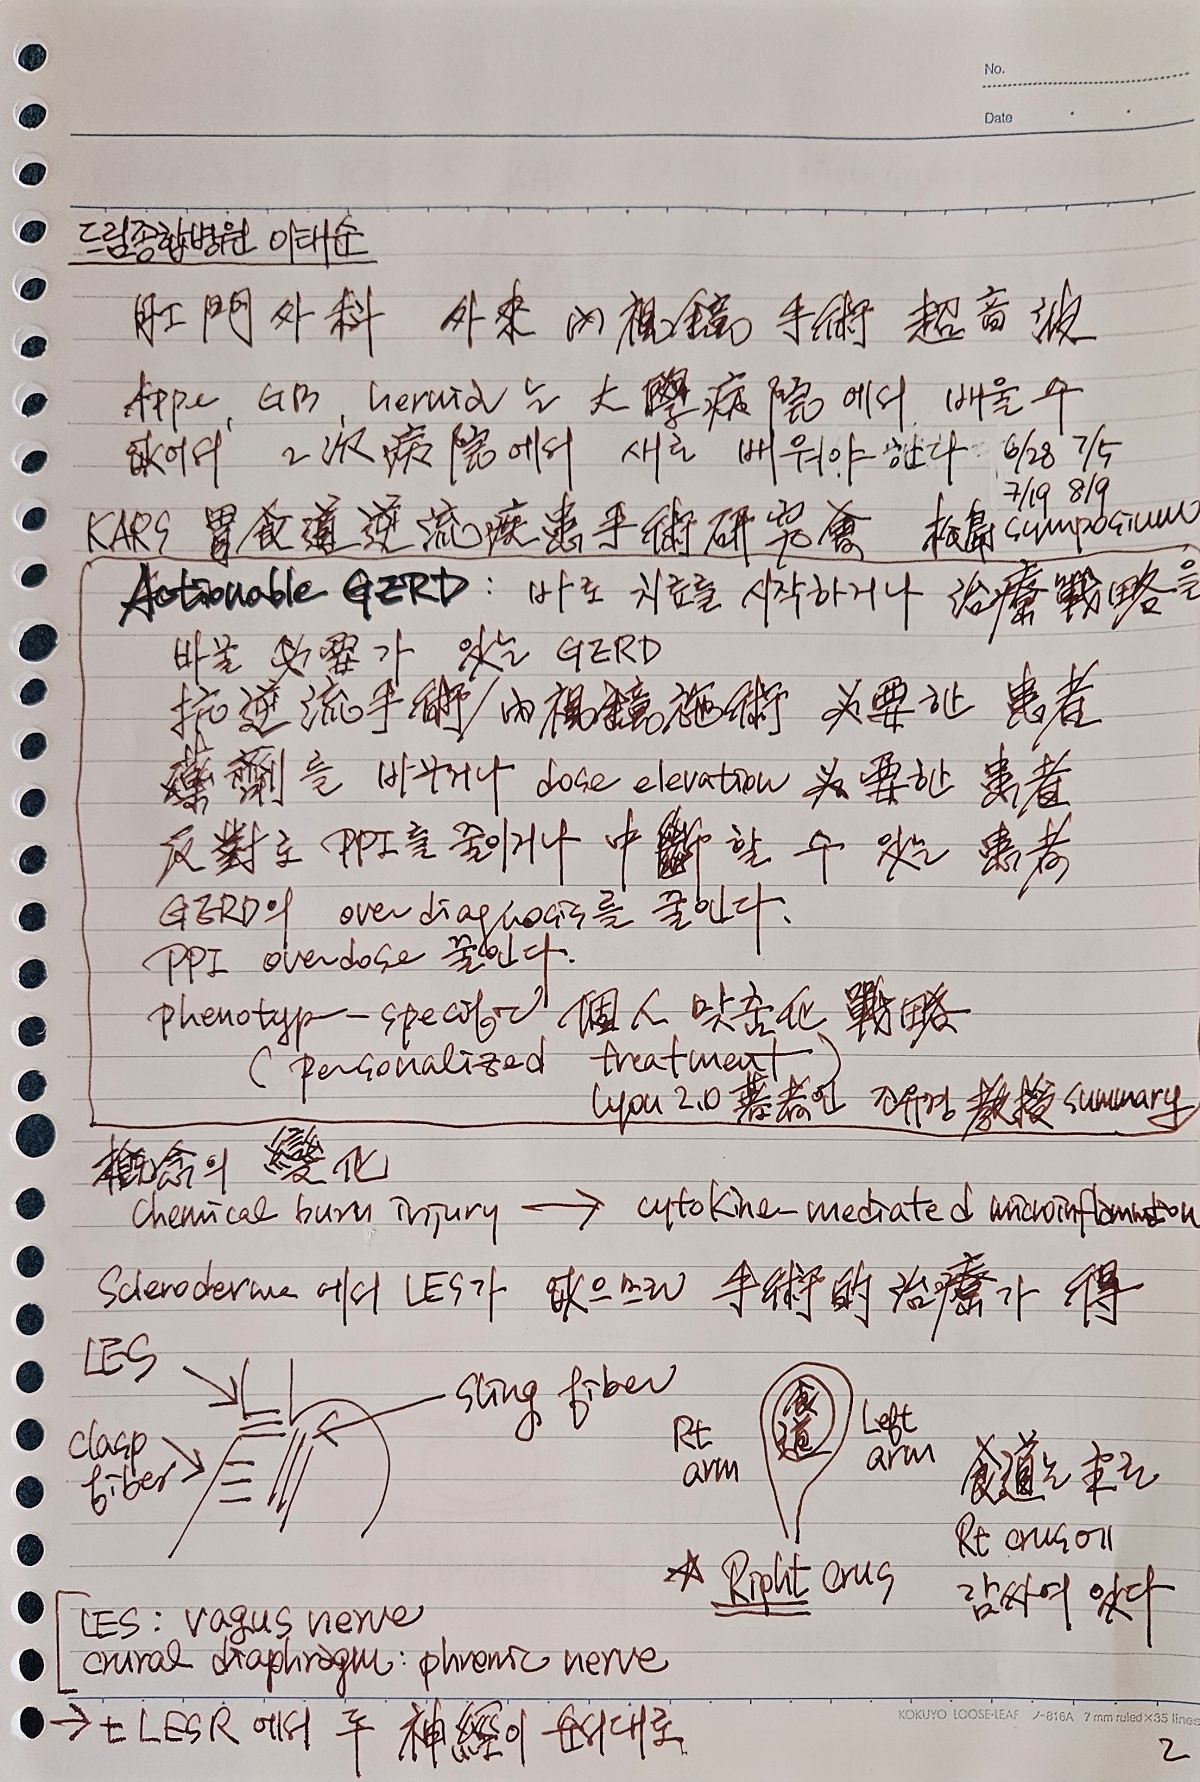 No.
Date
드림종합병원 이태순
肛門外科 外來 內視鏡 手術 超音波
Appe, GB, hernia는 大學病院에서 배울 수
없어서 2次病院에서 새로 배워야 한다 6/28 7/5
7/19 8/9
KARS 胃食道逆流疾患手術研究會 symposium
Actionable GERD : 바로 치료를 시작하거나 治療戰略을
바꿀 必要가 있는 GERD
抗逆流手術/內視鏡施術 必要한 患者
藥劑를 바꾸거나 dose elevation 必要한 患者
反對로 PPI를 줄이거나 中斷할 수 있는 患者
GERD의 overdiagnosis를 줄인다.
PPI overdose 줄인다.
phenotyp-specific 個人 맞춤化 戰略
(personalized treatment)
Lyon 2.0 著者인 조유경 敎授 summary
槪念의 變化
chemical burn injury → cytokine-mediated microinflammation
Scleroderma에서 LES가 없으므로 手術的 治療가 得
LES
sling fiber
clasp
fiber
食道
Rt
arm
Left
arm
食道는 주로
Rt crus에
감싸여 있다
☆ Right crus
LES : vagus nerve
crural diaphragm : phrenic nerve
→ tLESR에서 두 神經이 순서대로
KOKUYO LOOSE-LEAF ノ-816A 7 mm ruled×35 lines
2